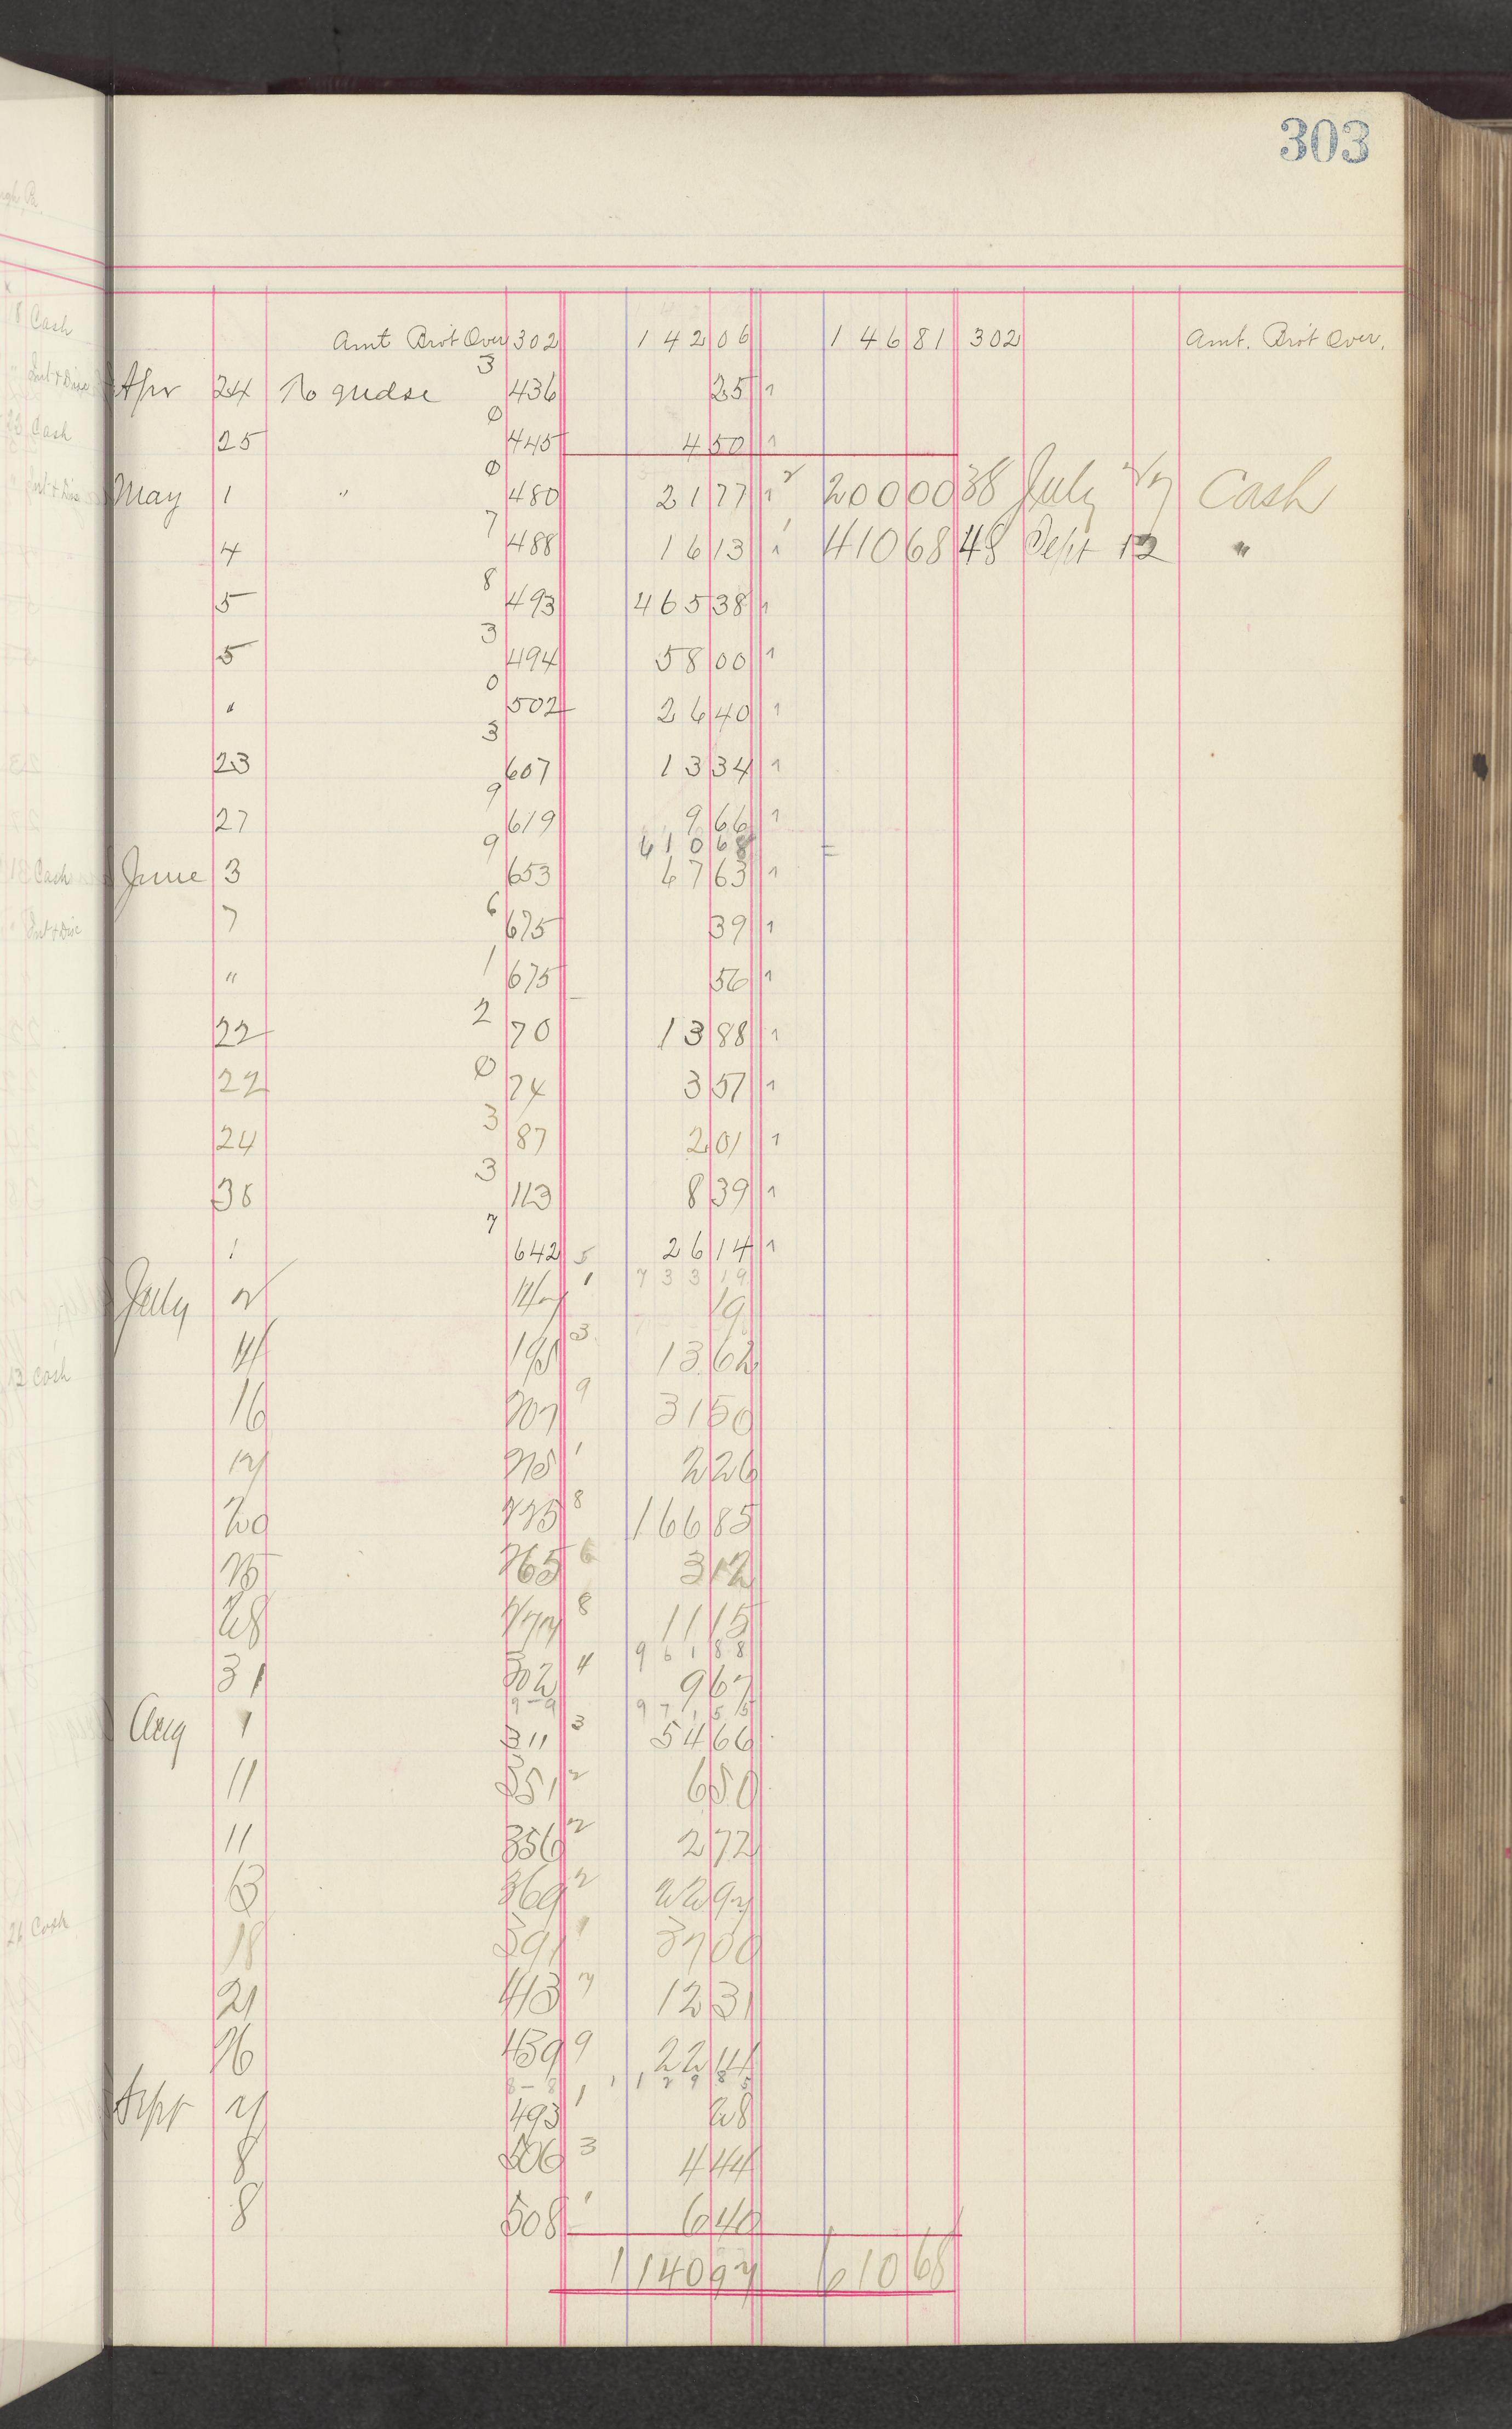 303
Amt Bro't Over 302 142 06 146 81 302 Amt. Bro't Over.
Apr 24 To mdse 3 436 25
25 0 445 4 50
May 1 " 0 480 21 77 2 200 00 38 July 27 Cash
4 7 488 16 13 1 410 68 48 Sept 12 "
5 8 493 465 38
5 3 494 58 00
" 0 502 26 40
23 3 607 13 34
27 9 619 9 66
610 68
June 3 9 653 67 63
7 6 675 39
" 1 675 56
22 2 70 13 88
22 0 74 3 57
24 3 87 2 01
30 3 113 8 39
1 7 642 5 26 14
733 19
July 2 147 1 19
14 195 3 13 62
16 207 9 31 50
17 215 1 2 26
20 225 8 166 85
25 265 6 3 12
28 277 8 11 15
961 88
31 302 4 9 67
9-9 971 55
Aug 1 311 3 54 66
11 351 2 6 50
11 356 2 2 72
13 369 2 22 97
18 391 1 37 00
21 413 7 12 31
26 439 9 22 14
8-8 1129 85
Sept 7 493 1 28
8 506 3 4 44
8 508 1 6 40
1140 97 610 68